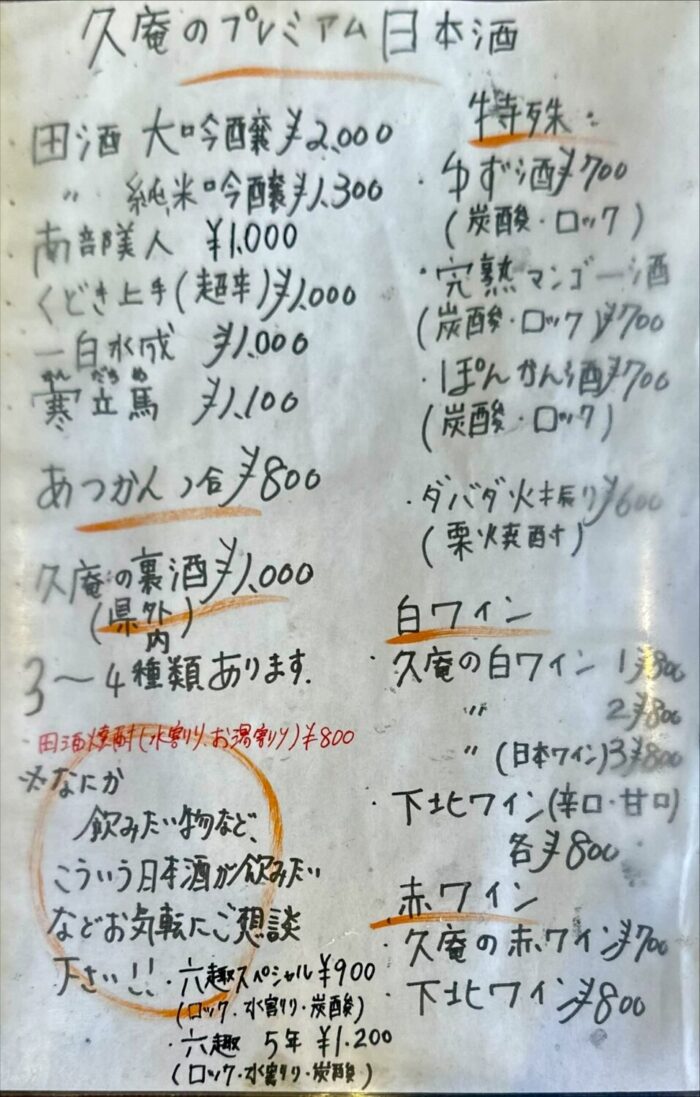 久庵のプレミアム日本酒
田酒 大吟醸 ¥2,000
〃 純米吟醸 ¥1,300
南部美人 ¥1,000
くどき上手(超辛) ¥1,000
一白水成 ¥1,000
かんだちめ
寒立馬 ¥1,100
あつかん 2合 ¥800
久庵の裏酒 ¥1,000
(県外内)
3〜4種類あります.
田酒焼酎(水割り、お湯割り)¥800
※なにか
飲みたい物など、
こういう日本酒が飲みたい
などお気転にご想談
下さい!!
・六趣スペシャル ¥900
(ロック・水割り・炭酸)
・六趣 5年 ¥1.200
(ロック・水割り・炭酸)
特殊:
・ゆず酒 ¥700
(炭酸・ロック)
・完熟マンゴー酒
(炭酸・ロック) ¥700
・ぽんかん酒 ¥700
(炭酸・ロック)
・ダバダ火振り ¥600
(栗焼酎)
白ワイン
・久庵の白ワイン 1 ¥800
〃 2 ¥800
〃 (日本ワイン) 3 ¥800
・下北ワイン(辛口・甘口)
各 ¥800
赤ワイン
・久庵の赤ワイン ¥700
・下北ワイン ¥800